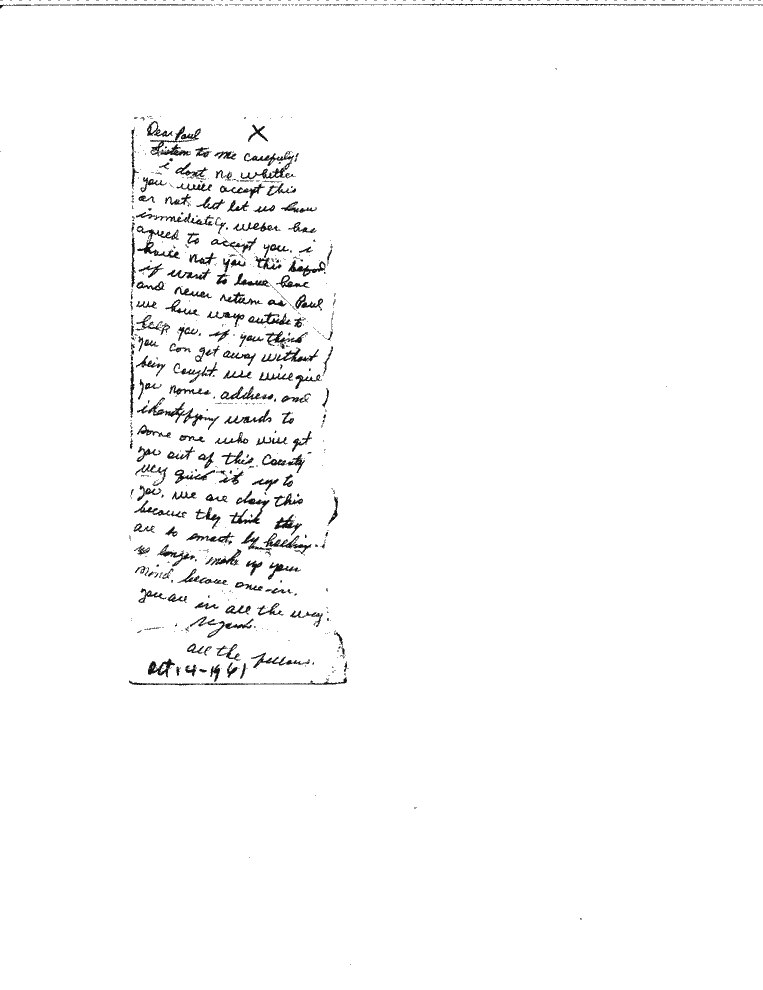 Dear Paul X
Listen to me carefuly!
i dont no whether
you will accept this
or not. but let us know
immediately. weber has
agreed to accept you. i
have not you this
if want to leave here
and never return as Paul
we have ways outside to
help you. if you think
you can get away without
being caught. we will give
you names. address. and
words to
some one who will get
you out of this County
very quick it up to
you. we are doing this
because they think they
are so smart. by holding
us longer. make up your
mind. because once-in.
you are in all the way.
regards.
all the fellows.
oct 14-1961